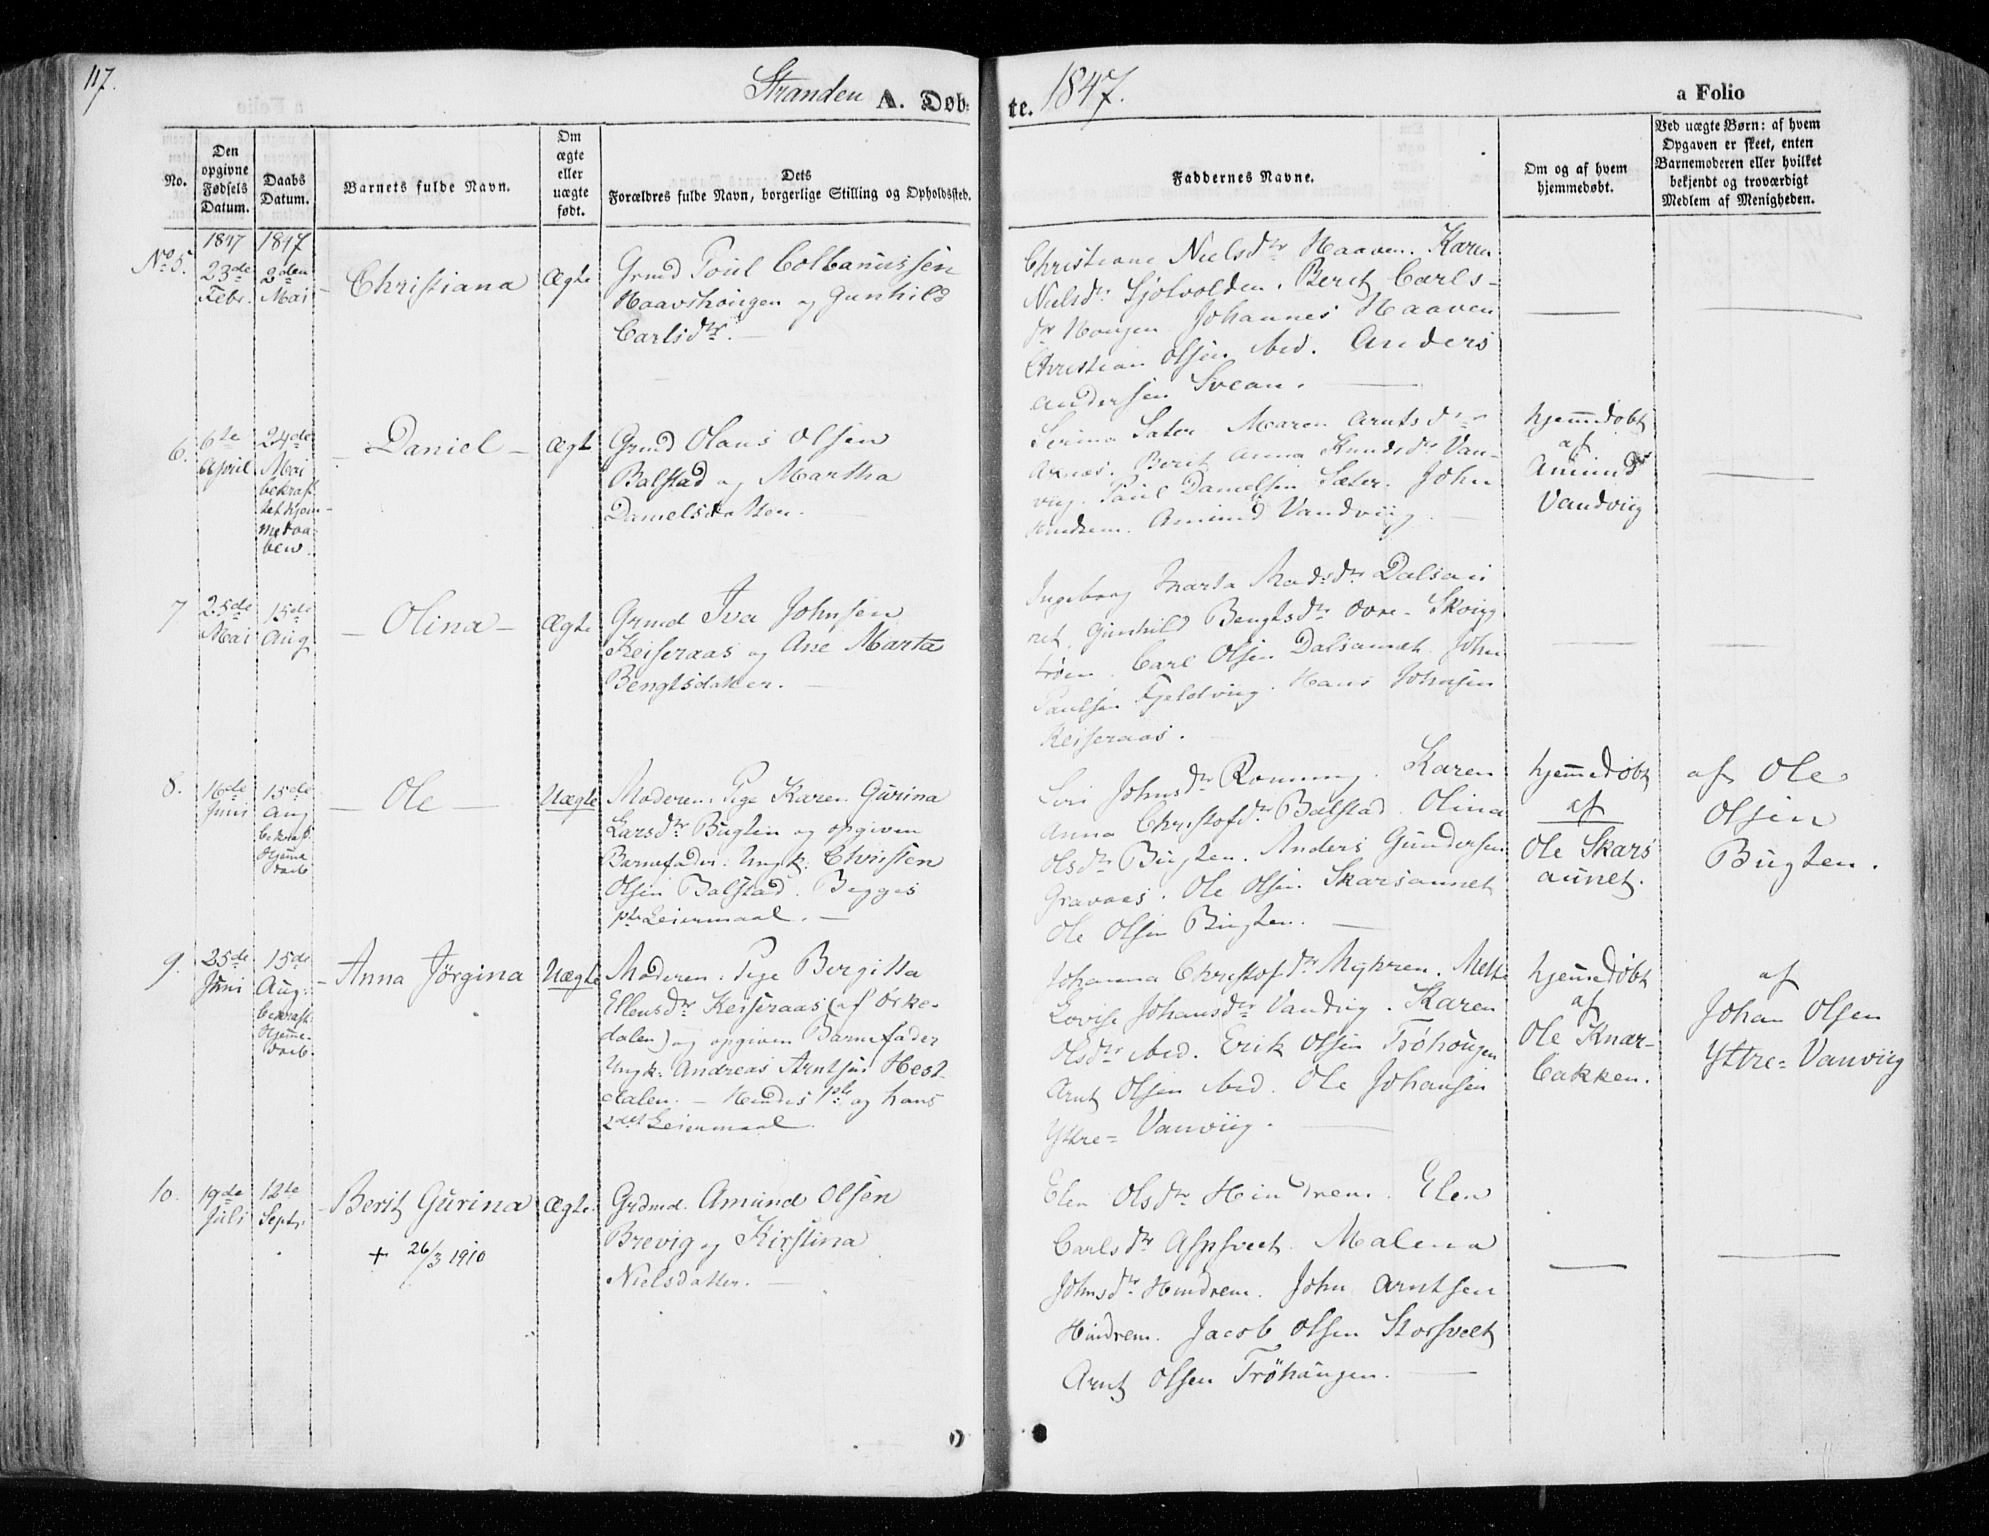 117.
Stranden A. Døb-
te. 1847.
a Folio
No.
Den opgivne Fødsels Datum.
Daabs Datum.
Barnets fulde Navn.
Om ægte eller uægte født.
Dets Forældres fulde Navn, borgerlige Stilling og Opholdssted.
Faddernes Navne.
Om og af hvem hjemmedøbt.
Ved uægte Børn: af hvem Opgaven er skeet, enten Barnemoderen eller hvilket bekjendt og troværdigt Medlem af Menigheden.
1847
1847
No 5.
23de Febr.
2den Mai
Christiana
Ægte
Grmd Poul Colbanussen
Haavshougen og Gunhild
Carlsdtr.
Christiane Nielsdtr Haaven. Karen
Nielsdtr Sjøtvolden. Berit Carls-
dtr Hougen Johannes Haaven
Christian Olsen ibid. Anders
Andersen Svean.
6.
6te April
24de Mai
bekræf-
tet hjem-
medaa-
ben.
Daniel
Ægte
Grmd Olaus Olsen
Balstad og Martha
Danielsdatter.
Serina Sæter Maren Arntsdtr
Aknæs. Berit Anna Knudsdtr Van-
vig. Paul Danielsen Sæter. John
Hindrem. Amund Vandviig
hjemmedøbt
af
Amund
Vandviig
7
25de Mai
15de Aug
Olina
Ægte
Grmd Iva Johnsen
Keiseraas og Ane Marta
Bengtsdatter.
Ingeborg Marta Madsdtr Dalsau
net, Gunhild Bengtsdtr Øvre-Skoigg
trøen. Carl Olsen Dalsaunet. John
Paulsen Fjeldviig. Hans Johnsen
Keiseraas.
8.
16de Juni
15de Aug
bekræft.
Hjemme
daab
Ole
Uægte
Moderen: Pige Karen Gurina
Larsdtr Bugten og opgiven
Barnefader: Ungk: Christen
Olsen Balstad. Begges
1ste Leiermaal.
Johnsdtr Romung. Karen
Anna Christofdtr Balstad. Olina
Olsdtr Bugten. Anders Gundersen
Gravaas. Ole Olsen Skarsaunet
Ole Olsen Bugten.
hjemmedøbt
af
Ole Skars
aunet.
af Ole
Olsen
Bugten.
9.
25de Juni
15de Aug:
bekræft.
Hjemme-
daab.
Anna Jörgina
Uægte
Moderen: Pige Bergitta
Ellensdtr Keiseraas (af Orke-
dalen) og opgiven Barnefader
Ungk: Andreas Arntsen Hest-
dalen. - Hendes 1ste og hans
2det Leiermaal.
Johanna Christofdtr Myhren. Mette
Lovise Johansdtr Vandvig. Karen
Olsdtr ibid. Erik Olsen Trøhougen
Arnt Olsen ibid. Ole Johansen
Yttre- Vanviig.
hjemmedøbt
af
Ole Knar-
bakken.
af
Johan Olsen
Yttre- Vanviig
10.
19de Juli
12te Septr.
Berit Gurina
+ 26/3 1910
Ægte.
Grdmd. Amund Olsen
Brevig og Kirstina
Nielsdatter.
Elen Olsdtr Hindrem. Elen
Carlsdtr Aspsveet. Malena
Johnsdtr Hindrem. John Arntsen
Hindrem. Jacob Olsen Storsveet
Arnt Olsen Trøhaugen.